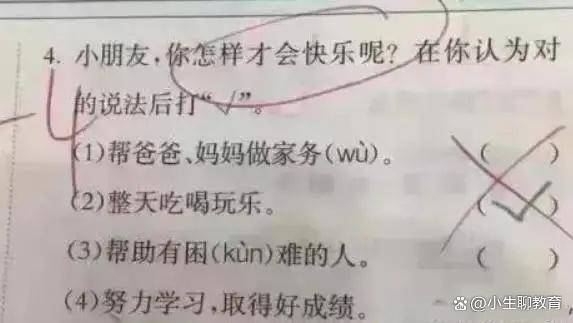 4. 小朋友,你怎样才会快乐呢?在你认为对
的说法后打“√”。
(1)帮爸爸、妈妈做家务(wù)。 ( )
(2)整天吃喝玩乐。 (√)
(3)帮助有困(kùn)难的人。 ( )
(4)努力学习,取得好成绩。
小生聊教育